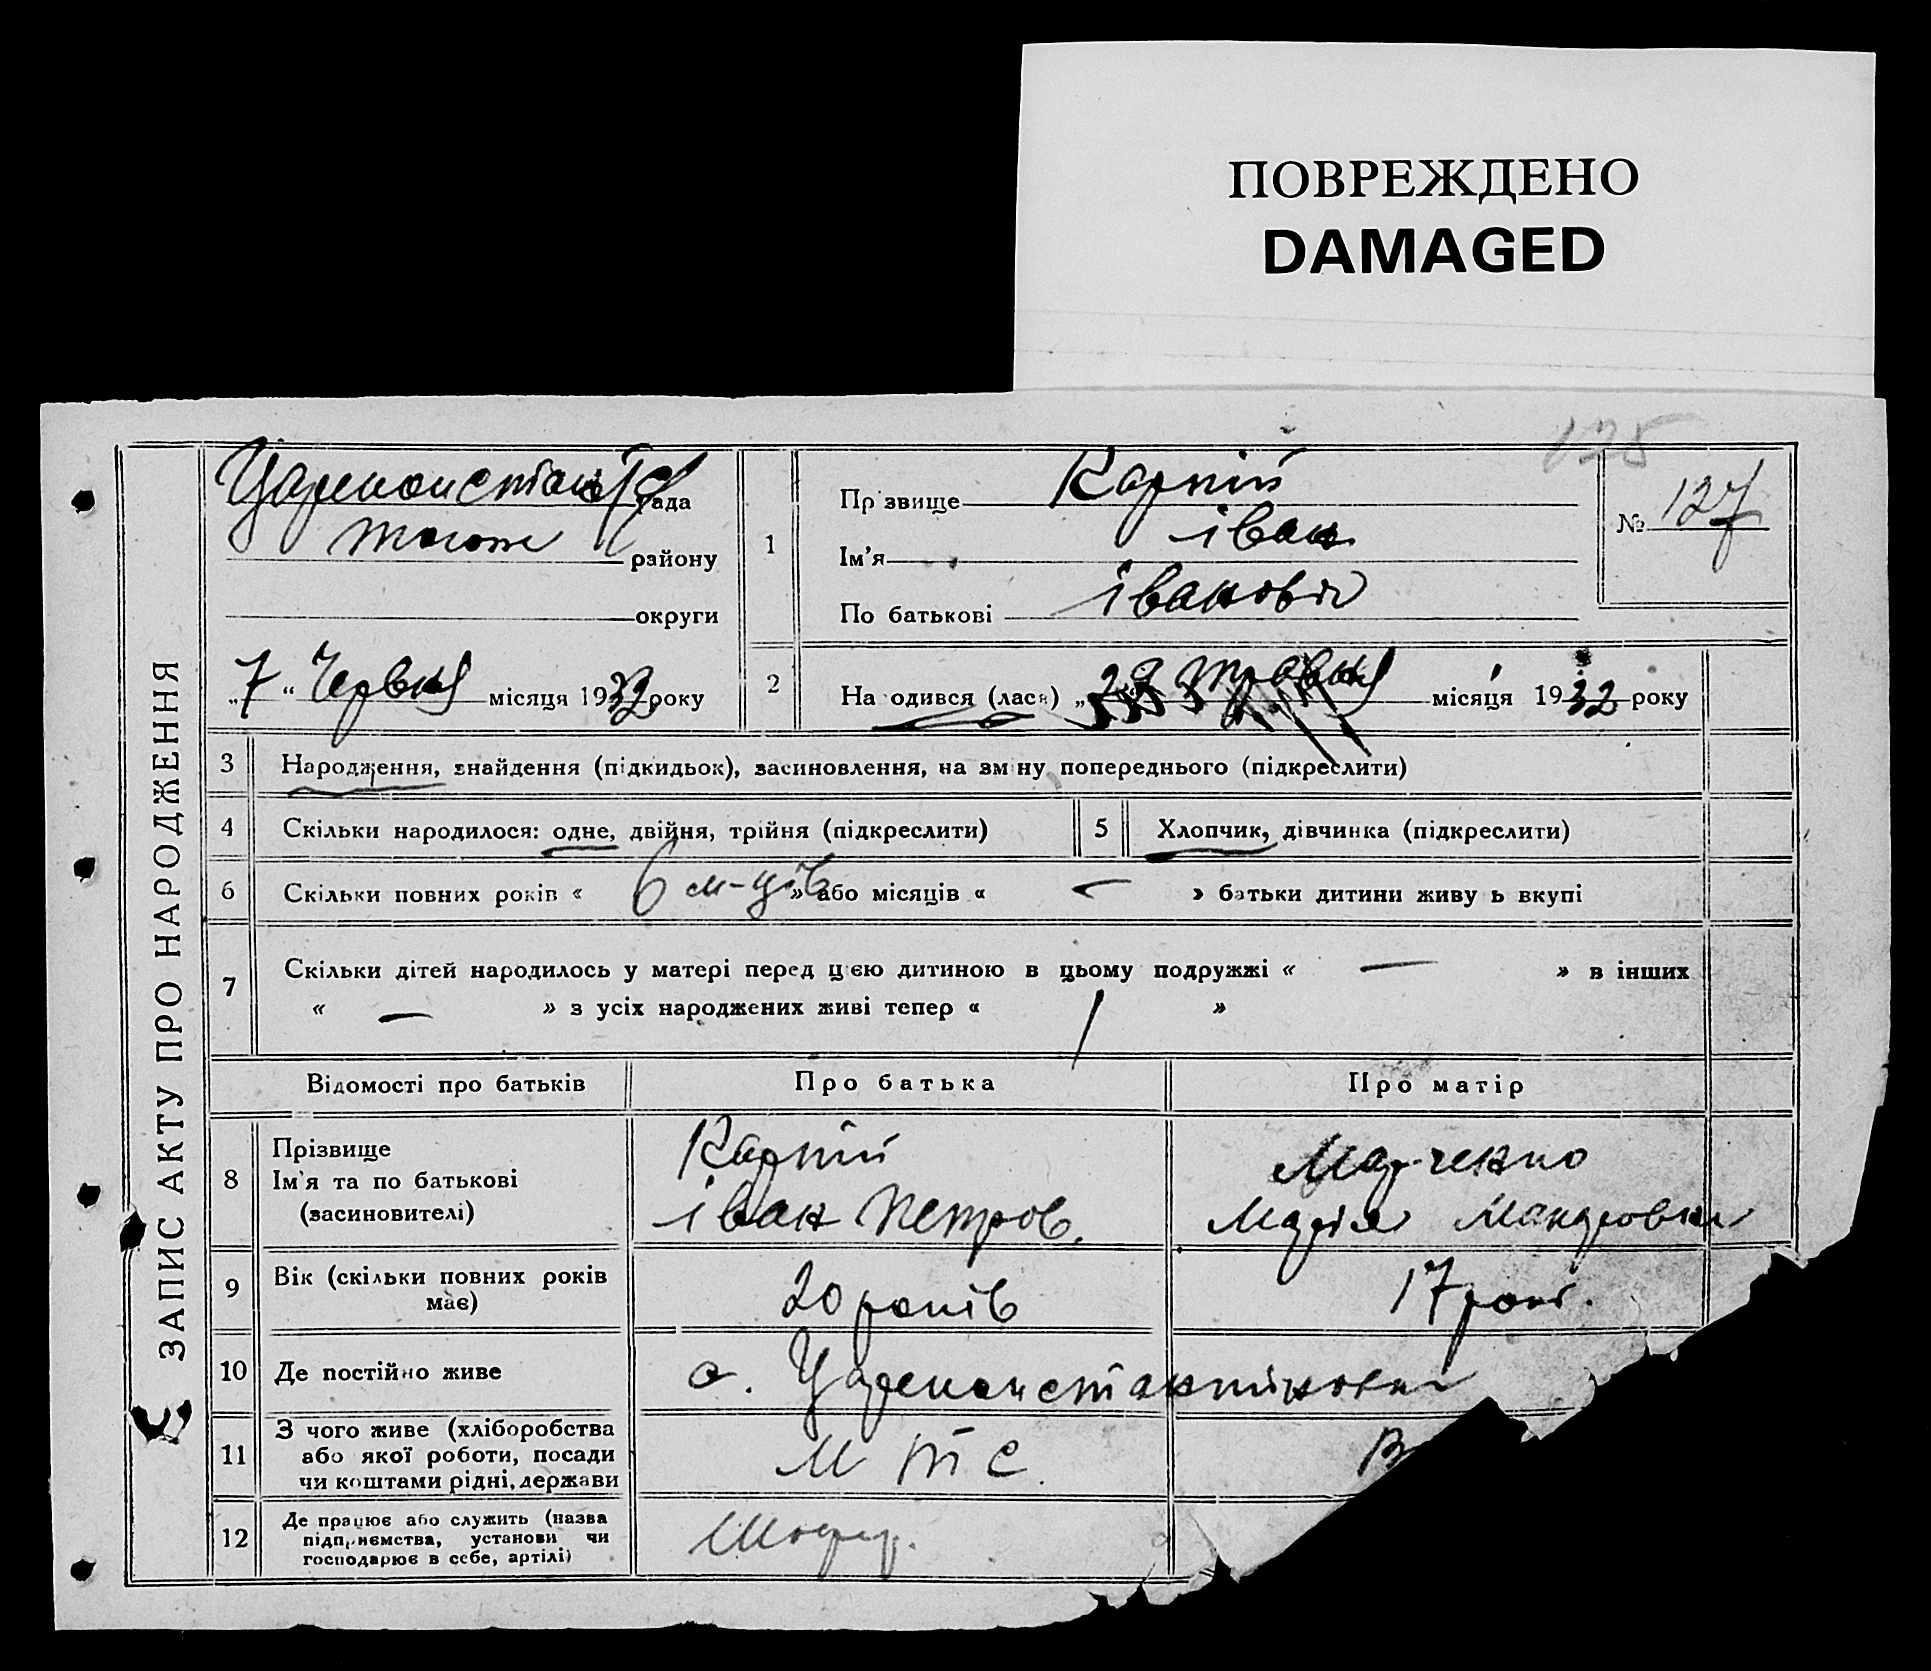 ПОВРЕЖДЕНО
DAMAGED
125
ЗАПИС АКТУ ПРО НАРОДЖЕННЯ
Цареконстан рада
також району
округи
„7“ Червня місяця 1932 року
1
Прізвище Карпій
Ім'я іван
По батькові іванович
№ 127
2
Народився (лася) „29 травня місяця 1932 року
3 Народження, знайдення (підкидьок), засиновлення, на зміну попереднього (підкреслити)
4 Скільки народилося: одне, двійня, трійня (підкреслити)
5 Хлопчик, дівчинка (підкреслити)
6 Скільки повних років « 6 м-ців » або місяців « — » батьки дитини живуть вкупі
7 Скільки дітей народилось у матері перед цією дитиною в цьому подружжі « — » в інших
« — » з усіх народжених живі тепер « 1 »
Відомості про батьків Про батька Про матір
8 Прізвище
Ім'я та по батькові
(засиновителі)
Карпій
іван Петров.
Марченко
Марія Макаровна
9 Вік (скільки повних років
має)
20 років
17 рокі.
10 Де постійно живе
с. Цареконстантиновка
11 З чого живе (хліборобства
або якої роботи, посади
чи коштами рідні, держави
М Т С.
В
12 Де працює або служить (назва
підприємства, установи чи
господарює в себе, артілі)
Шофер.